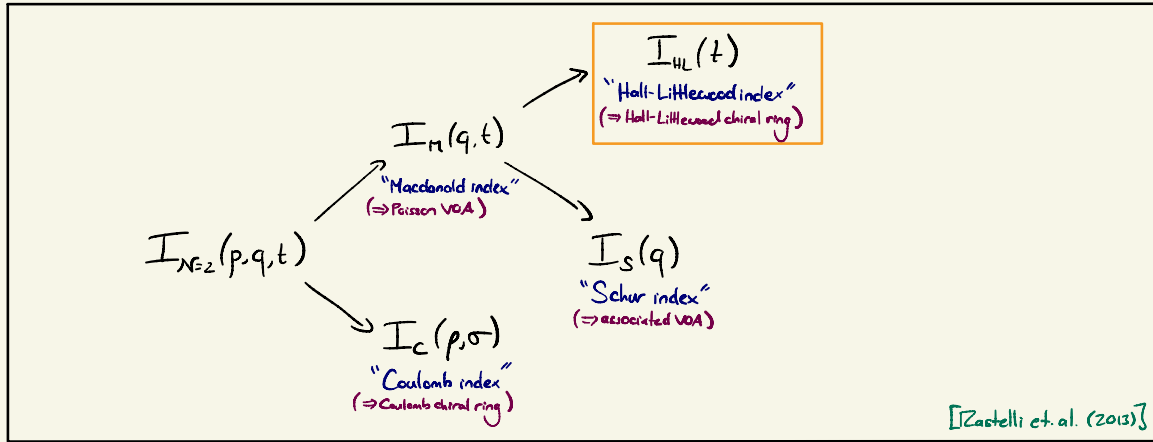 I_HL(t)
"Hall-Littlewood index"
(⇒ Hall-Littlewood chiral ring)
I_M(q,t)
"Macdonald index"
(⇒ Poisson VOA)
I_N=2(p,q,t)
I_S(q)
"Schur index"
(⇒ associated VOA)
I_C(p,σ)
"Coulomb index"
(⇒ Coulomb chiral ring)
[Rastelli et. al. (2013)]